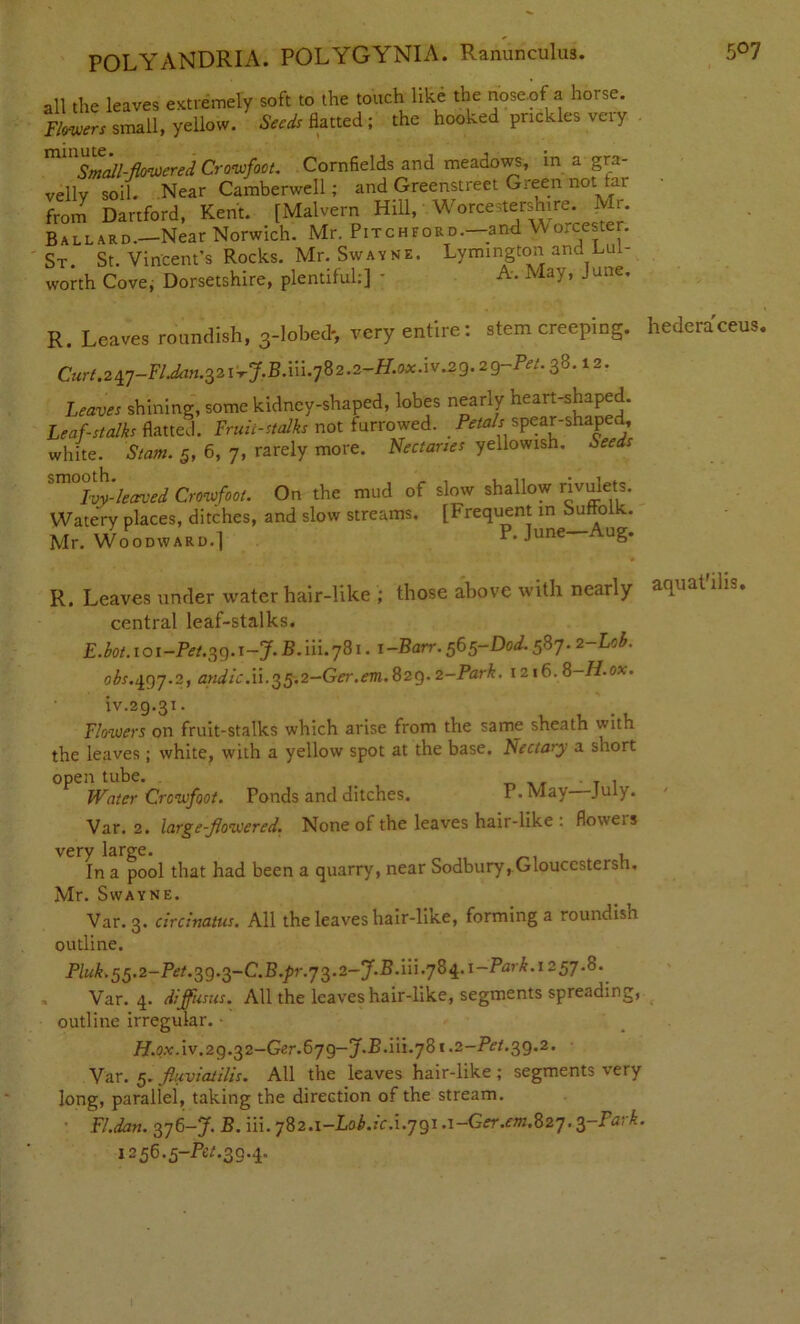 POLYANDRIA. POLYGYNIA. Ranunculus. 507
all the leaves extremely soft to the touch like the nose of a horse.
Flowers small, yellow. Seeds flatted; the hooked prickles very
minute.
Small-flowered Crowfoot. Cornfields and meadows, in a gra-
velly soil. Near Camberwell; and Greenstreet Green not far
from Dartford, Kent. [Malvern Hill, Worcestershire. Mr.
BALLARD.—Near Norwich. Mr. PITCHFORD.—and Worcester.
ST. St. Vincent's Rocks. Mr. SWAYNE. Lymington and Lul-
worth Cove, Dorsetshire, plentiful:] A. May, June.
R. Leaves roundish, 3-lobed, very entire: stem creeping. hedera'ceus.
Curt.247-Fl.dan.321-J.B.iii.782.2-H.ox.iv.29.29-Pet.38.12.
Leaves shining, some kidney-shaped, lobes nearly heart-shaped.
Leaf-stalks flatted. Fruit-stalks not furrowed. Petals spear-shaped,
white. Stam. 5, 6, 7, rarely more. Nectaries yellowish. Seeds
smooth.
Ivy-leaved Crowfoot. On the mud of slow shallow rivulets.
Watery places, ditches, and slow streams. [Frequent in Suffolk.
Mr. WOODWARD.] P. June—Aug.
R. Leaves under water hair-like; those above with nearly aquat'ilis.
central leaf-stalks.
E.bot.101-Pet.39.1-J.B.iii.781.1-Barr.565-Dod.587.2-Lob.
obs.497.2, andic.ii.35.2-Ger.em.829.2-Park.1216.8-H.ox.
iv.29.31.
Flowers on fruit-stalks which arise from the same sheath with
the leaves; white, with a yellow spot at the base. Nectary a short
open tube.
Water Crowfoot. Ponds and ditches. P. May—July.
Var. 2. large-flowered. None of the leaves hair-like: flowers
very large.
In a pool that had been a quarry, near Sodbury, Gloucestersh.
Mr. SWAYNE.
Var. 3. circinatus. All the leaves hair-like, forming a roundish
outline.
Pluk.55.2-Pet.39.3-C.B.pr.73.2-J.B.iii.784.1-Park.1257.8.
Var. 4. diffusus. All the leaves hair-like, segments spreading,
outline irregular.
H.ox.iv.29.32-Ger.679-J.B.iii.781.2-Pet.39.2.
Var. 5. fluviatilis. All the leaves hair-like; segments very
long, parallel, taking the direction of the stream.
Fl.dan. 376-J. B. iii. 782.1-Lob.ic.i.791.1-Ger.em.827.3-Park.
1256.5-Pet.39.4.